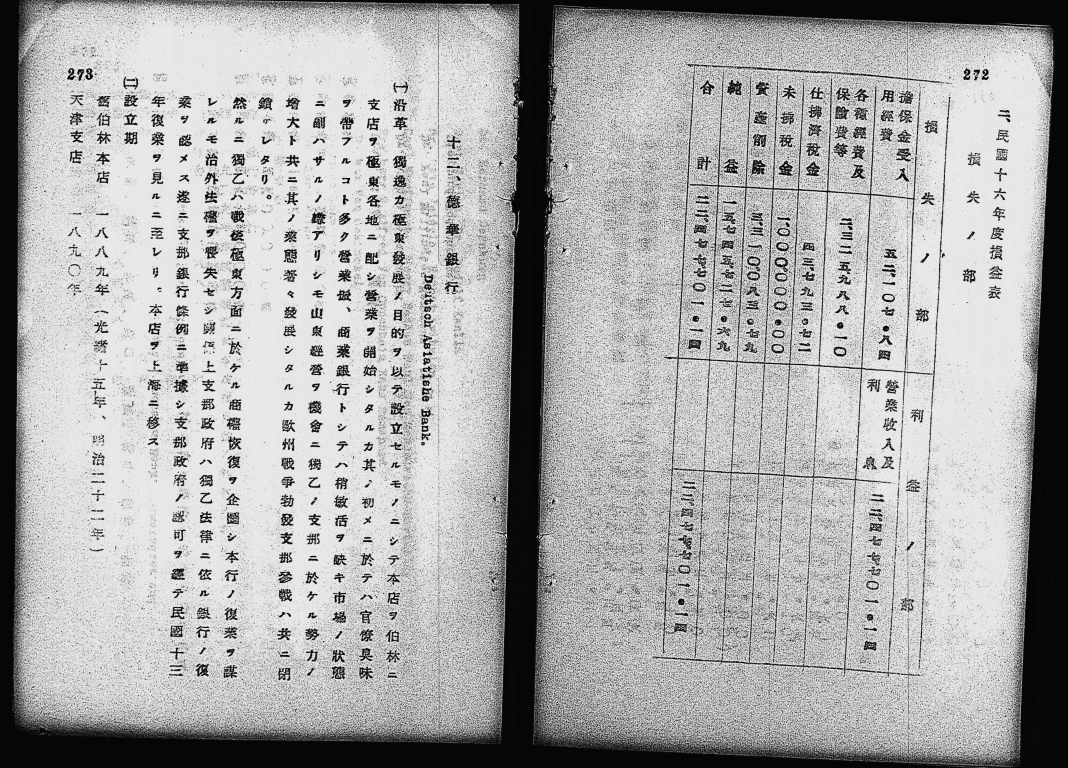 272
二、民國十六年度損益表
損失ノ部
損失ノ部
利益ノ部
擔保金受入用經費
五二、一〇七・八四
營業收入及利息
二二、四七七、七〇一・一四
各種經費及保險費等
二、三二五、九八八・一〇
仕拂濟税金
四三七、九三・七二
未拂税金
一、〇〇〇、〇〇〇・〇〇
資產削除
三、三一〇、〇八三・七九
純益
一五、七四五、七二七・六九
合計
二二、四七七、七〇一・一四
二二、四七七、七〇一・一四
273
十二、德華銀行
Deutsch Asiatishe Bank.
㈠沿革 獨逸カ極東發展ノ目的ヲ以テ設立セルモノニシテ本店ヲ伯林ニ
支店ヲ極東各地ニ配シ營業ヲ開始シタルカ其ノ初メニ於テハ官僚臭味
ヲ帶フルコト多ク營業振、商業銀行トシテハ稍敏活ヲ缺キ市場ノ狀態
ニ副ハサルノ嫌アリシモ山東經營ヲ機會ニ獨乙ノ支那ニ於ケル勢力ノ
增大ト共ニ其ノ業態著々發展シタルカ歐州戰爭勃發支那參戰ハ共ニ閉
鎖サレタリ。
然ルニ獨乙ハ戰後極東方面ニ於ケル商權恢復ヲ企圖シ本行ノ復業ヲ謀
レルモ治外法權ヲ喪失セシ關係上支那政府ハ獨乙法律ニ依ル銀行ノ復
業ヲ認メス遂ニ支那銀行條例ニ準據シ支那政府ノ認可ヲ經テ民國十三
年復業ヲ見ルニ至レリ。本店ヲ上海ニ移ス
㈡設立期
舊伯林本店 一八八九年(光緒十五年、明治二十二年)
天津支店 一八九〇年